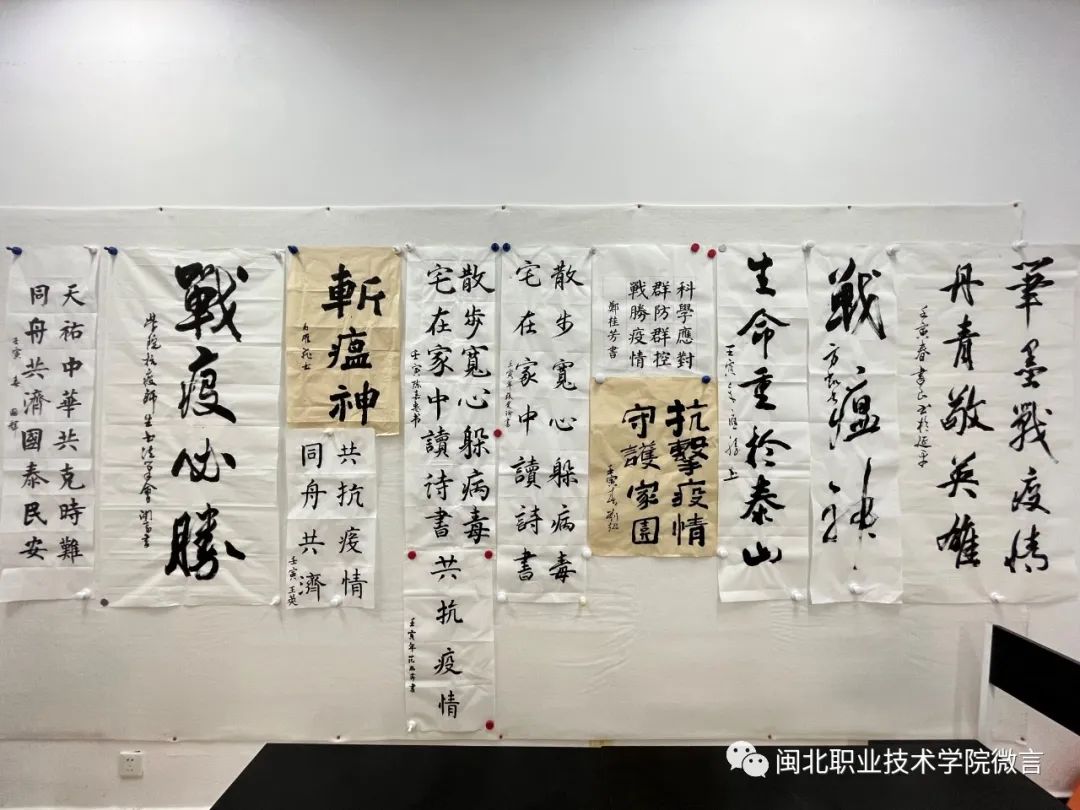 筆墨戰疫情
丹青敬英雄
壬寅春
戰瘟神
生命重於泰山
科學應對
群防群控
戰勝疫情
鄭桂芳書
抗擊疫情
守護家園
散步寬心躲病毒
宅在家中讀詩書
散步寬心躲病毒
宅在家中讀诗書
共抗疫情
斬瘟神
共抗疫情
同舟共濟
壬寅 玉英
戰疫必勝
天祐中華共克時難
同舟共濟國泰民安
闽北职业技术学院微言